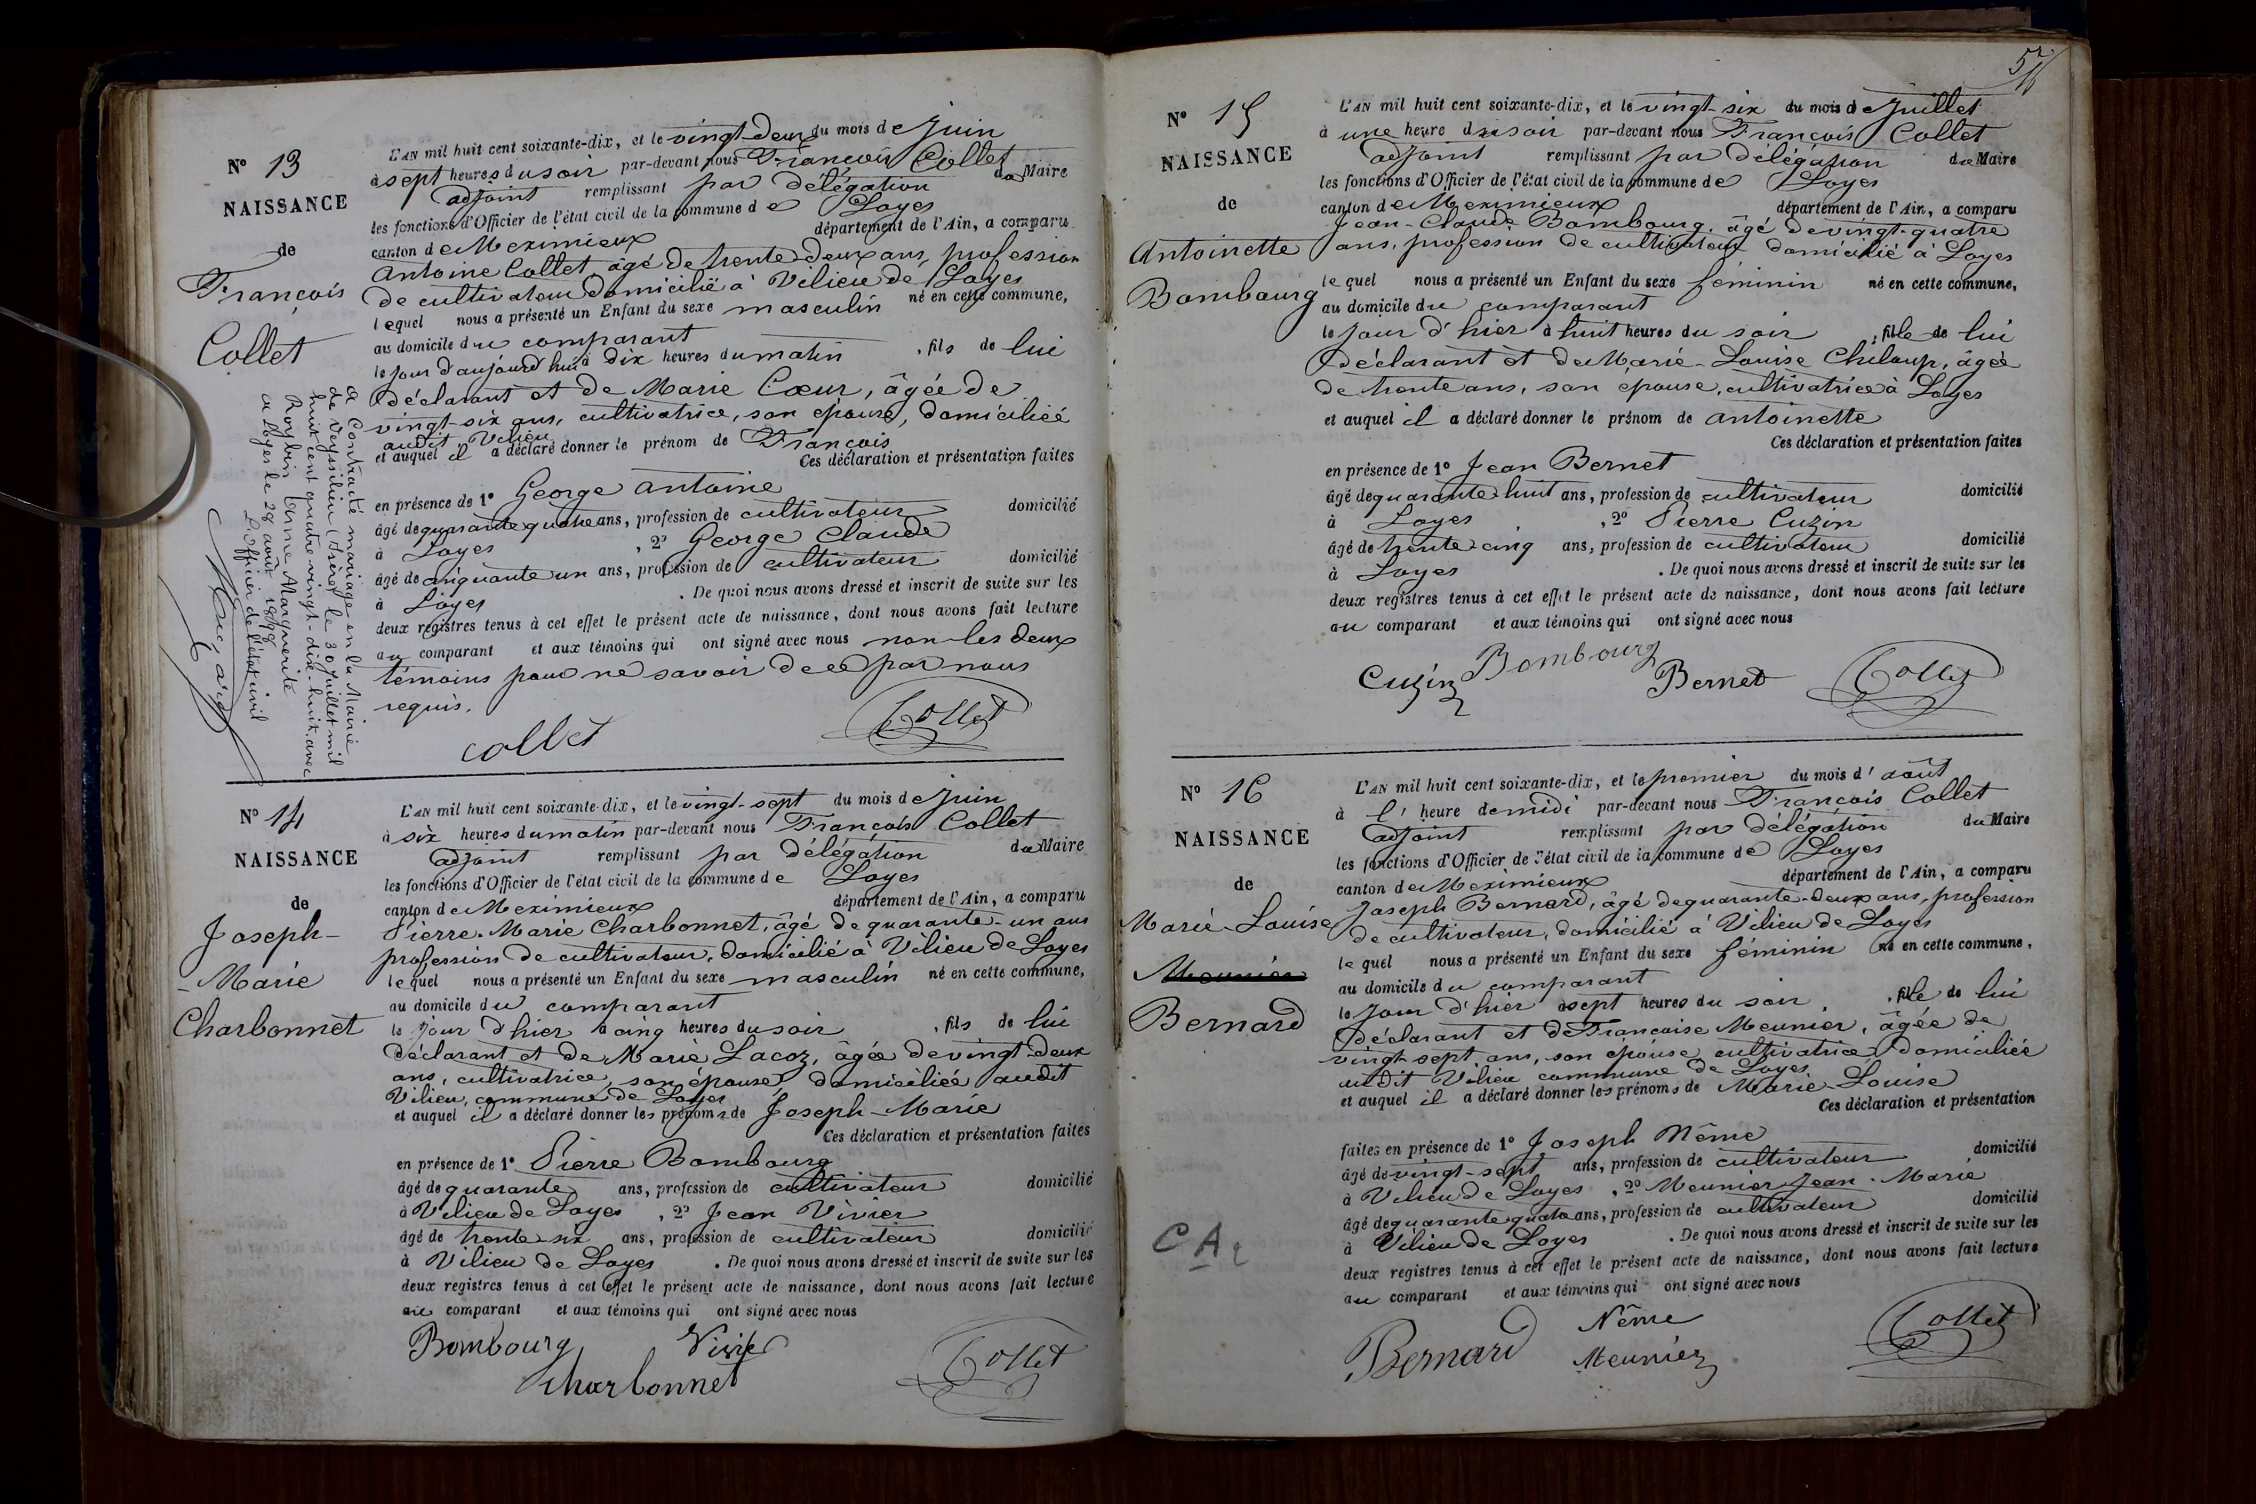 Nº 13
NAISSANCE
de
François
Collet
L'AN mil huit cent soixante-dix, et le vingt-deux du mois de Juin
à sept heures du soir par-devant nous François Collet
adjoint remplissant par délégation du Maire
les fonctions d'Officier de l'état civil de la commune de Loyes
canton de Meximieux département de l'Ain, a comparu
Antoine Collet âgé de trente deux ans, profession
de cultivateur domicilié à Vilieu de Loyes
lequel nous a présenté un Enfant du sexe masculin né en cette commune,
au domicile du comparant
le jour d'aujourd'hui à dix heures du matin, fils de lui
déclarant et de Marie Cœur, âgée de
vingt-six ans, cultivatrice, son épouse, domiciliée
audit Vilieu
et auquel il a déclaré donner le prénom de François
Ces déclaration et présentation faites
en présence de 1º George Antoine
âgé de quarante quatre ans, profession de cultivateur domicilié
à Loyes, 2º George Claude
âgé de cinquante un ans, profession de cultivateur domicilié
à Loyes. De quoi nous avons dressé et inscrit de suite sur les
deux registres tenus à cet effet le présent acte de naissance, dont nous avons fait lecture
au comparant et aux témoins qui ont signé avec nous non les deux
témoins pour ne savoir de ce par nous
requis.
collet Collet
a Contracté mariage en la Mairie
de Veyssilieu (Isère) le 30 Juillet mil
huit cent quatre vingt-dix-huit avec
Roybin Anne Marguerite
a Loyes le 28 août 1898
L'officier de l'état civil
Nº 14
NAISSANCE
de
Joseph-
-Marie
Charbonnet
L'AN mil huit cent soixante-dix, et le vingt-sept du mois de Juin
à six heures du matin par-devant nous François Collet
adjoint remplissant par délégation du Maire
les fonctions d'Officier de l'état civil de la commune de Loyes
canton de Meximieux département de l'Ain, a comparu
Pierre-Marie Charbonnet, âgé de quarante-un ans
profession de cultivateur, domicilié à Vilieu de Loyes
lequel nous a présenté un Enfant du sexe masculin né en cette commune,
au domicile du comparant
le jour d'hier à cinq heures du soir, fils de lui
déclarant et de Marie Lacoz, âgée de vingt-deux
ans, cultivatrice, son épouse, domiciliée audit
Vilieu, commune de Loyes
et auquel il a déclaré donner les prénoms de Joseph-Marie
Ces déclaration et présentation faites
en présence de 1º Pierre Bombourg
âgé de quarante ans, profession de cultivateur domicilié
à Vilieu de Loyes, 2º Jean Vivier
âgé de trente-six ans, profession de cultivateur domicilié
à Vilieu de Loyes. De quoi nous avons dressé et inscrit de suite sur les
deux registres tenus à cet effet le présent acte de naissance, dont nous avons fait lecture
au comparant et aux témoins qui ont signé avec nous
Bombourg Vivier
Charbonnet Collet
57
Nº 15
NAISSANCE
de
Antoinette
Bombourg
L'AN mil huit cent soixante-dix, et le vingt-six du mois de Juillet
à une heure du soir par-devant nous François Collet
adjoint remplissant par délégation du Maire
les fonctions d'Officier de l'état civil de la commune de Loyes
canton de Meximieux département de l'Ain, a comparu
Jean-Claude Bombourg, âgé de vingt-quatre
ans, profession de cultivateur domicilié à Loyes
lequel nous a présenté un Enfant du sexe féminin né en cette commune,
au domicile du comparant
le jour d'hier à huit heures du soir, fille de lui
déclarant et de Marie-Louise Chiloup, âgée
de trente ans, son épouse, cultivatrice à Loyes
et auquel il a déclaré donner le prénom de Antoinette
Ces déclaration et présentation faites
en présence de 1º Jean Bernet
âgé de quarante-huit ans, profession de cultivateur domicilié
à Loyes, 2º Pierre Cuzin
âgé de trente-cinq ans, profession de cultivateur domicilié
à Loyes. De quoi nous avons dressé et inscrit de suite sur les
deux registres tenus à cet effet le présent acte de naissance, dont nous avons fait lecture
au comparant et aux témoins qui ont signé avec nous
Cuzin Bombourg Bernet Collet
Nº 16
NAISSANCE
de
Marie-Louise
Meunier
Bernard
CA
L'AN mil huit cent soixante-dix, et le premier du mois d'août
à l'heure de midi par-devant nous François Collet
adjoint remplissant par délégation du Maire
les fonctions d'Officier de l'état civil de la commune de Loyes
canton de Meximieux département de l'Ain, a comparu
Joseph Bernard, âgé de quarante-deux ans, profession
de cultivateur, domicilié à Vilieu de Loyes
lequel nous a présenté un Enfant du sexe féminin né en cette commune,
au domicile du comparant
le jour d'hier à sept heures du soir, fille de lui
déclarant et de Françoise Meunier, âgée de
vingt-sept ans, son épouse cultivatrice domiciliée
audit Vilieu commune de Loyes
et auquel il a déclaré donner les prénoms de Marie-Louise
Ces déclaration et présentation
faites en présence de 1º Joseph Nême
âgé de vingt-sept ans, profession de cultivateur domicilié
à Vilieu de Loyes, 2º Meunier Jean-Marie
âgé de quarante quatre ans, profession de cultivateur domicilié
à Vilieu de Loyes. De quoi nous avons dressé et inscrit de suite sur les
deux registres tenus à cet effet le présent acte de naissance, dont nous avons fait lecture
au comparant et aux témoins qui ont signé avec nous
Bernard Nême Collet
Meunier